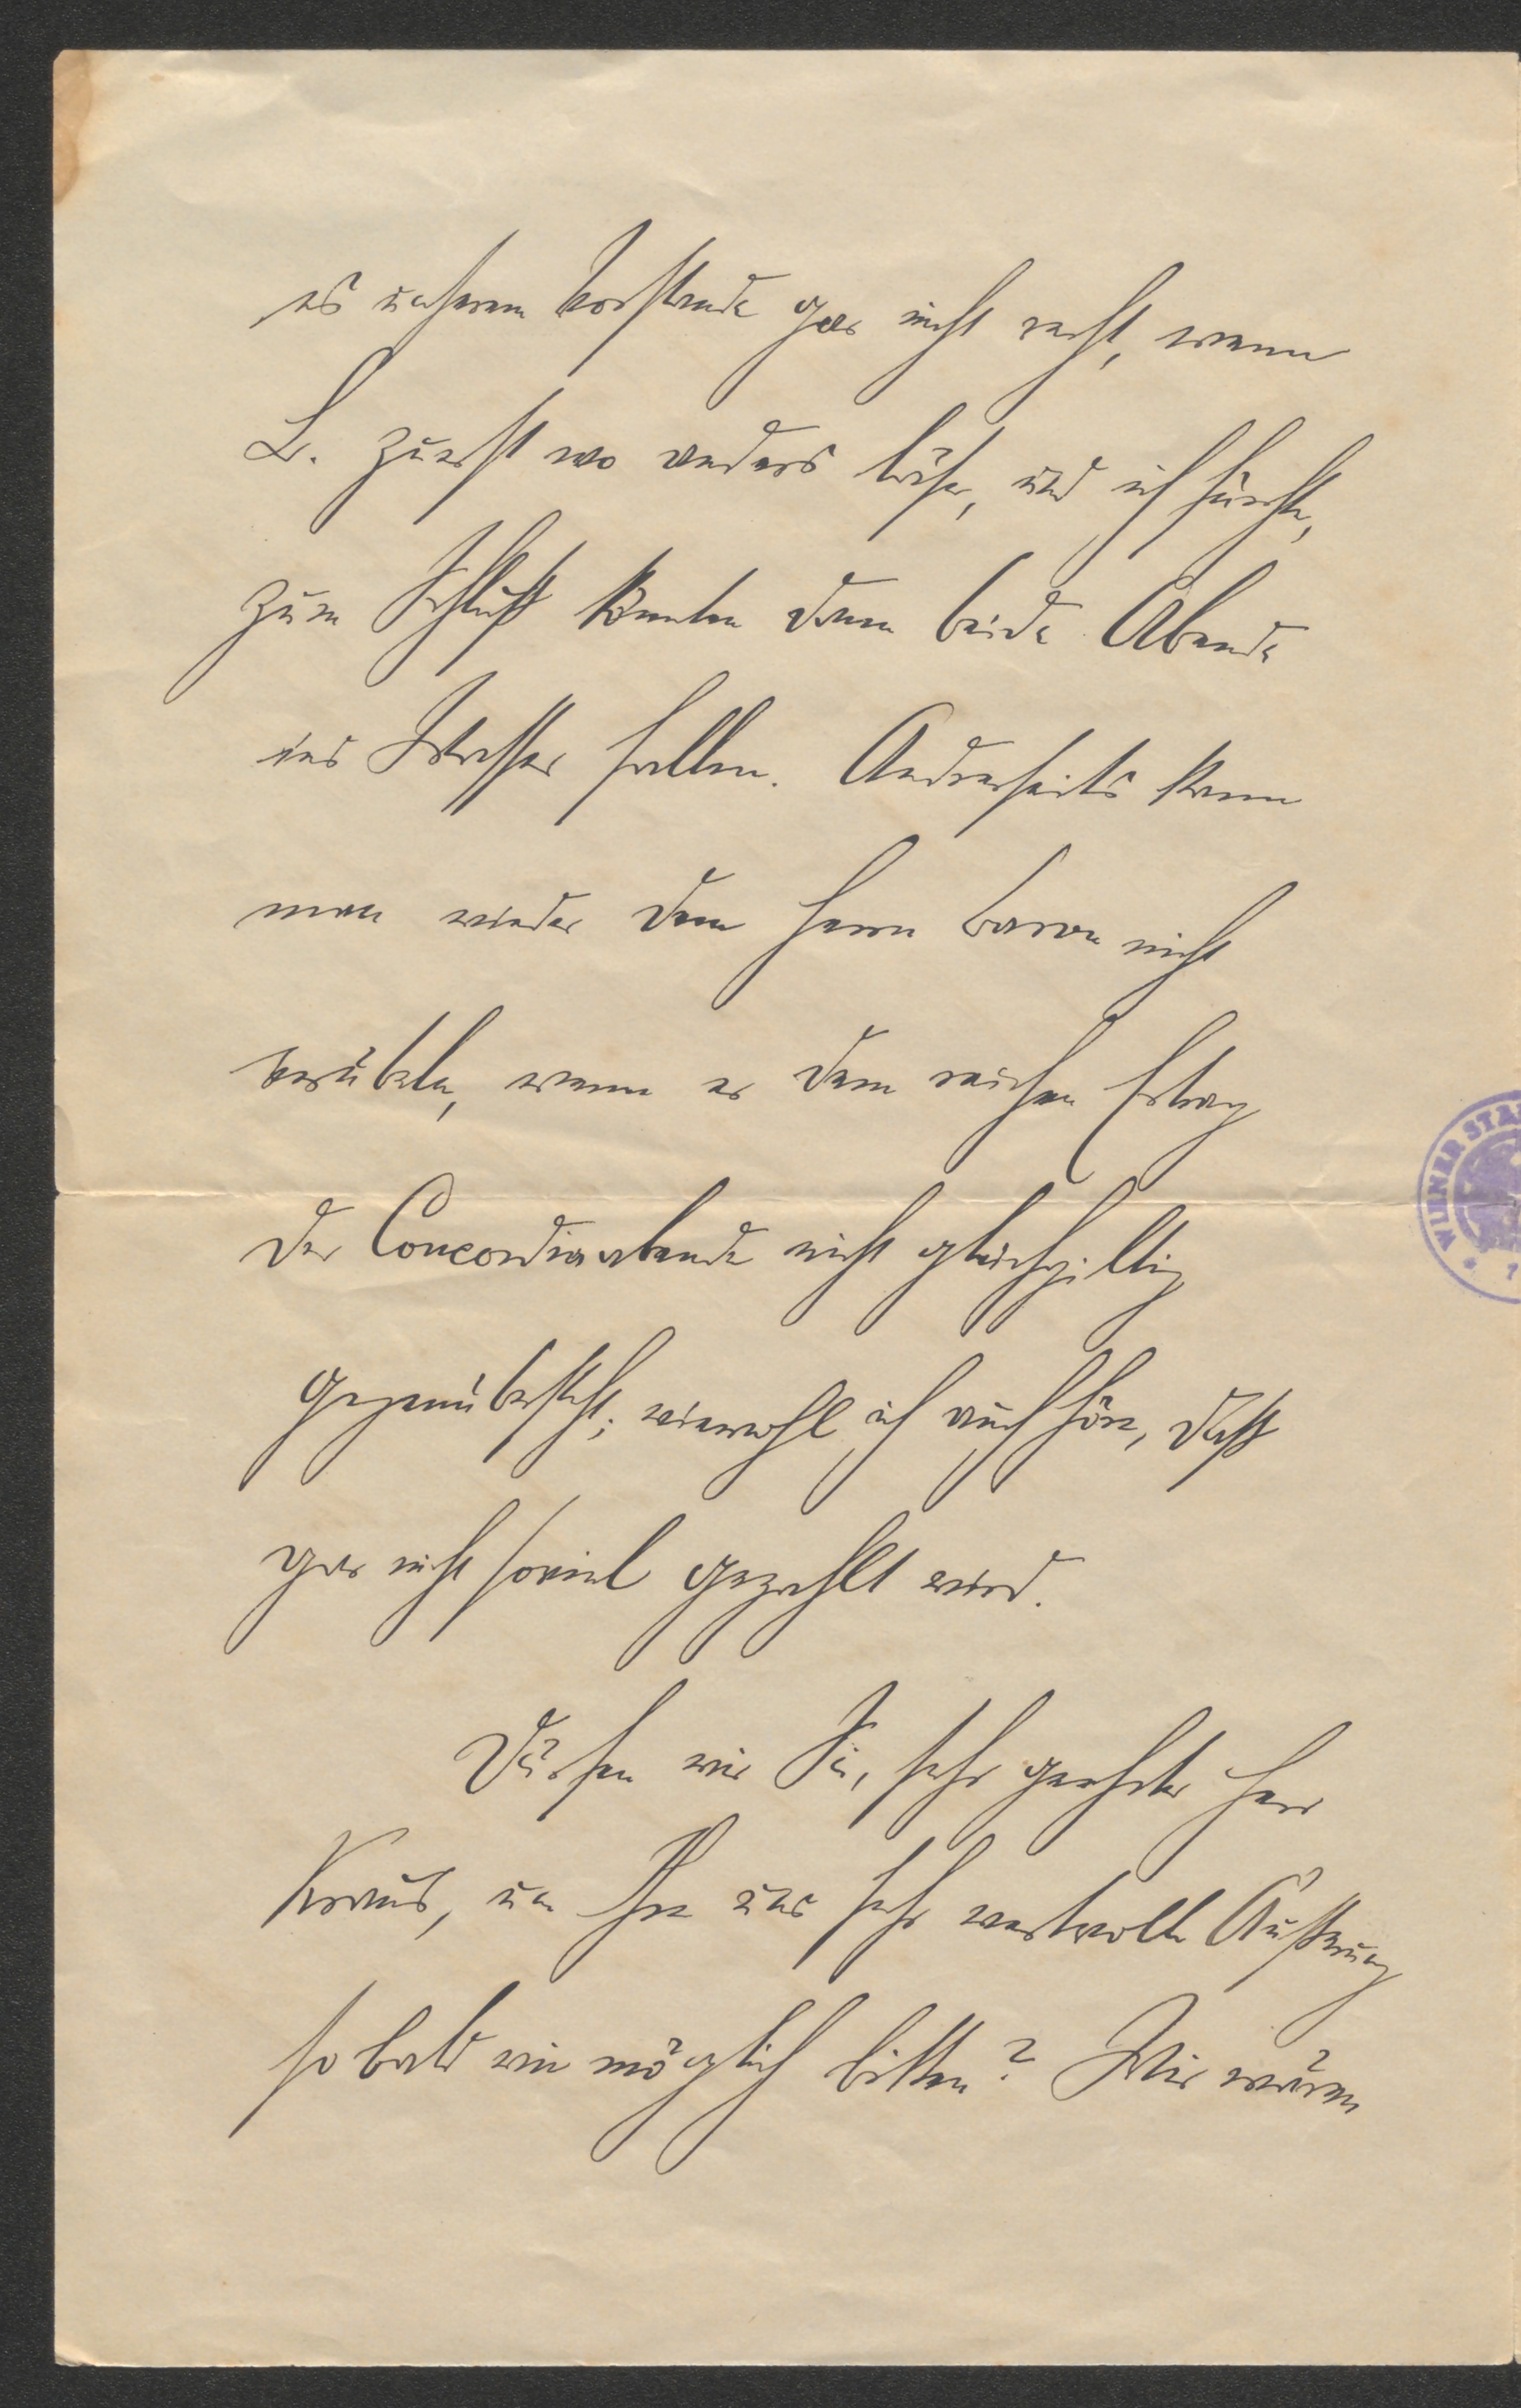 es unserem Vorstande gar nicht recht, wenn
L. zuerst wo anders läse, und ich fürchte,
zum Schluß könnten dann beide Abende
ins Wasser fallen. Anderseits kann
man wieder dem Herrn Baron nicht
verübeln, wenn er dem reichen Ertrag
der Concordiaabende nicht gleichgiltig
gegenübersteht; wiewohl ich auch höre, daß
gar nicht soviel gezahlt wird.
Dürfen wir Sie, sehr geehrter Herr
Kraus, um Ihre uns sehr wertvolle Äußerung
so bald wie möglich bitten? Wir wären
WIENER STA